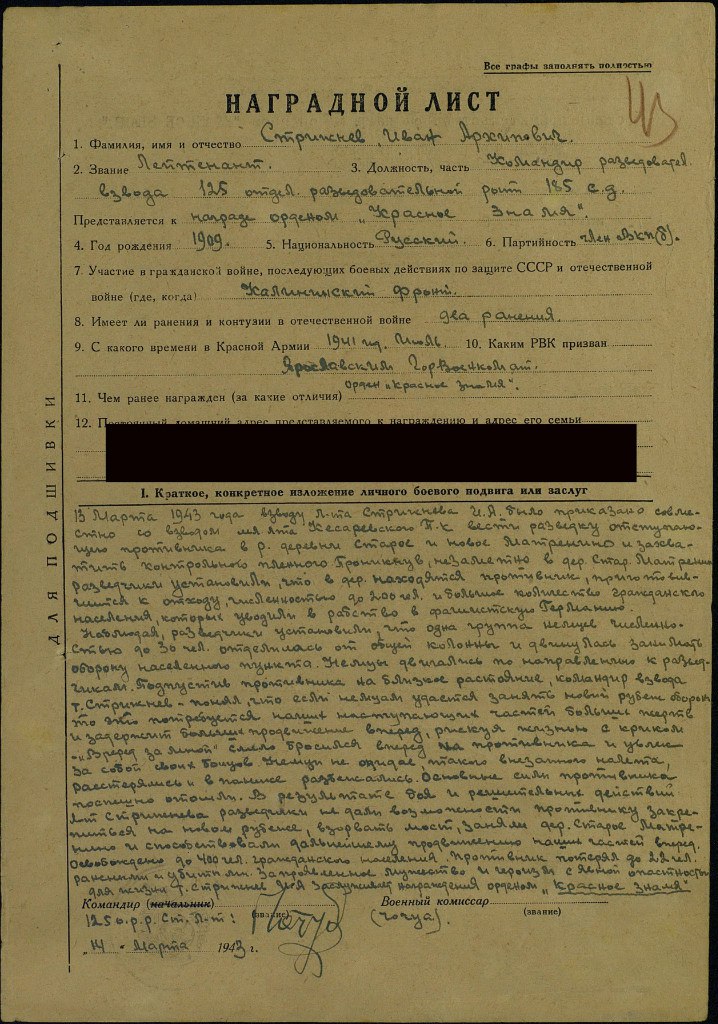 Все графы заполнять полностью
НАГРАДНОЙ ЛИСТ
1. Фамилия, имя и отчество Стрижнев Иван Архипович.
2. Звание Лейтенант. 3. Должность, часть Командир разведовател.
взвода 125 отдел. разведовательной роты 185 с.д.
Представляется к награде орденом „Красное Знамя".
4. Год рождения 1909. 5. Национальность Русский. 6. Партийность член ВКП(б).
7. Участие в гражданской войне, последующих боевых действиях по защите СССР и отечественной
войне (где, когда) Калининский фронт.
8. Имеет ли ранения и контузии в отечественной войне два ранения.
9. С какого времени в Красной Армии 1941 год. Июль. 10. Каким РВК призван
Ярославским Горвоенкомат.
11. Чем ранее награжден (за какие отличия) Орден „Красное знамя".
12. Постоянный домашний адрес представляемого к награждению и адрес его семьи
I. Краткое, конкретное изложение личного боевого подвига или заслуг
13 Марта 1943 года взводу л-та Стрижнева И.А. было приказано совме-
стно со взводом мл. л-та Кесаревского П.К вести разведку отступаю-
щего противника в р. деревни Старое и новое Матренино и захва-
тить контрольного пленного. Проникнув, незаметно в дер. Стар. Матренино
разведчики установили, что в дер. находятся противник, приготовив-
шийся к отходу, численностью до 200 чел. и большое количество гражданского
населения, которых уводили в рабство в фашистскую Германию.
Наблюдая, разведчики установили, что одна группа немцев численно-
стью до 30 чел. отделилась от общей колонны и двинулась занимать
оборону населенного пункта. Немцы двигались по направлению к развед-
чикам. Подпустив противника на близкое растояние, командир взвода
т. Стрижнев - понял, что если немцам удастся занять новый рубеж обороны
то это потребуется наших наступающих частей больших жертв
и задержит больших продвижение вперед, рискуя жизнью с криком
-„Вперед за мной" смело бросился вперед на противника и увлек
за собой своих бойцов. Немцы не ожидая такого внезапного налета,
расстерялись и в панике разбежались. Основные силы противника
поспешно отошли. В результате боя и решительных действий
л-т Стрижнева разведчики не дали возможности противнику закре-
питься на новом рубеже, взорвать мост, заняли дер. Старое Матре-
нино и способствовали дальнейшему продвижению наших частей вперед.
Освобождено до 400 чел. гражданского населения. Противник потерял до 22 чел.
ранеными и убитыми. За проявленное мужество и героизм с явной опасностью
для жизни т. Стрижнев И.А заслуживает награждения орденом „Красное знамя"
Командир (начальник) Военный комиссар
125 о.р.р. Ст. Л-т: (звание) (Чочуа). (звание)
„14" Марта 1943 г.
ДЛЯ ПОДШИВКИ